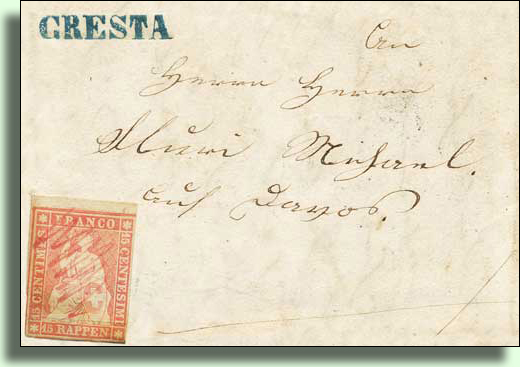 GRESTA
An
Herrn Herrn
Fluri Michael.
auf Davos.
FRANCO
15 CENTIMES
15 CENTESIMI
15 RAPPEN